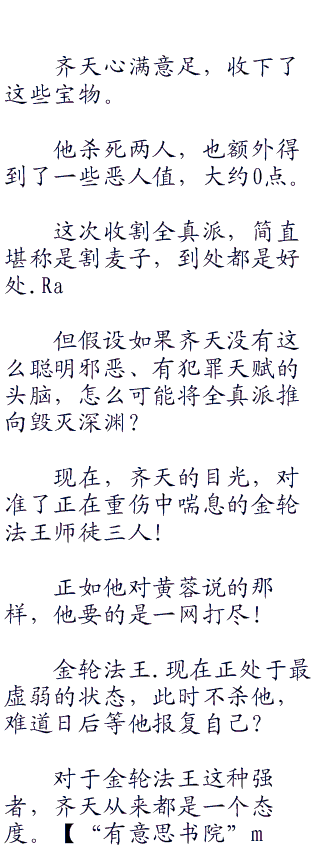 齐天心满意足，收下了
这些宝物。
他杀死两人，也额外得
到了一些恶人值，大约0点。
这次收割全真派，简直
堪称是割麦子，到处都是好
处.Ra
但假设如果齐天没有这
么聪明邪恶、有犯罪天赋的
头脑，怎么可能将全真派推
向毁灭深渊？
现在，齐天的目光，对
准了正在重伤中喘息的金轮
法王师徒三人！
正如他对黄蓉说的那
样，他要的是一网打尽！
金轮法王.现在正处于最
虚弱的状态，此时不杀他，
难道日后等他报复自己？
对于金轮法王这种强
者，齐天从来都是一个态
度。【“有意思书院”m